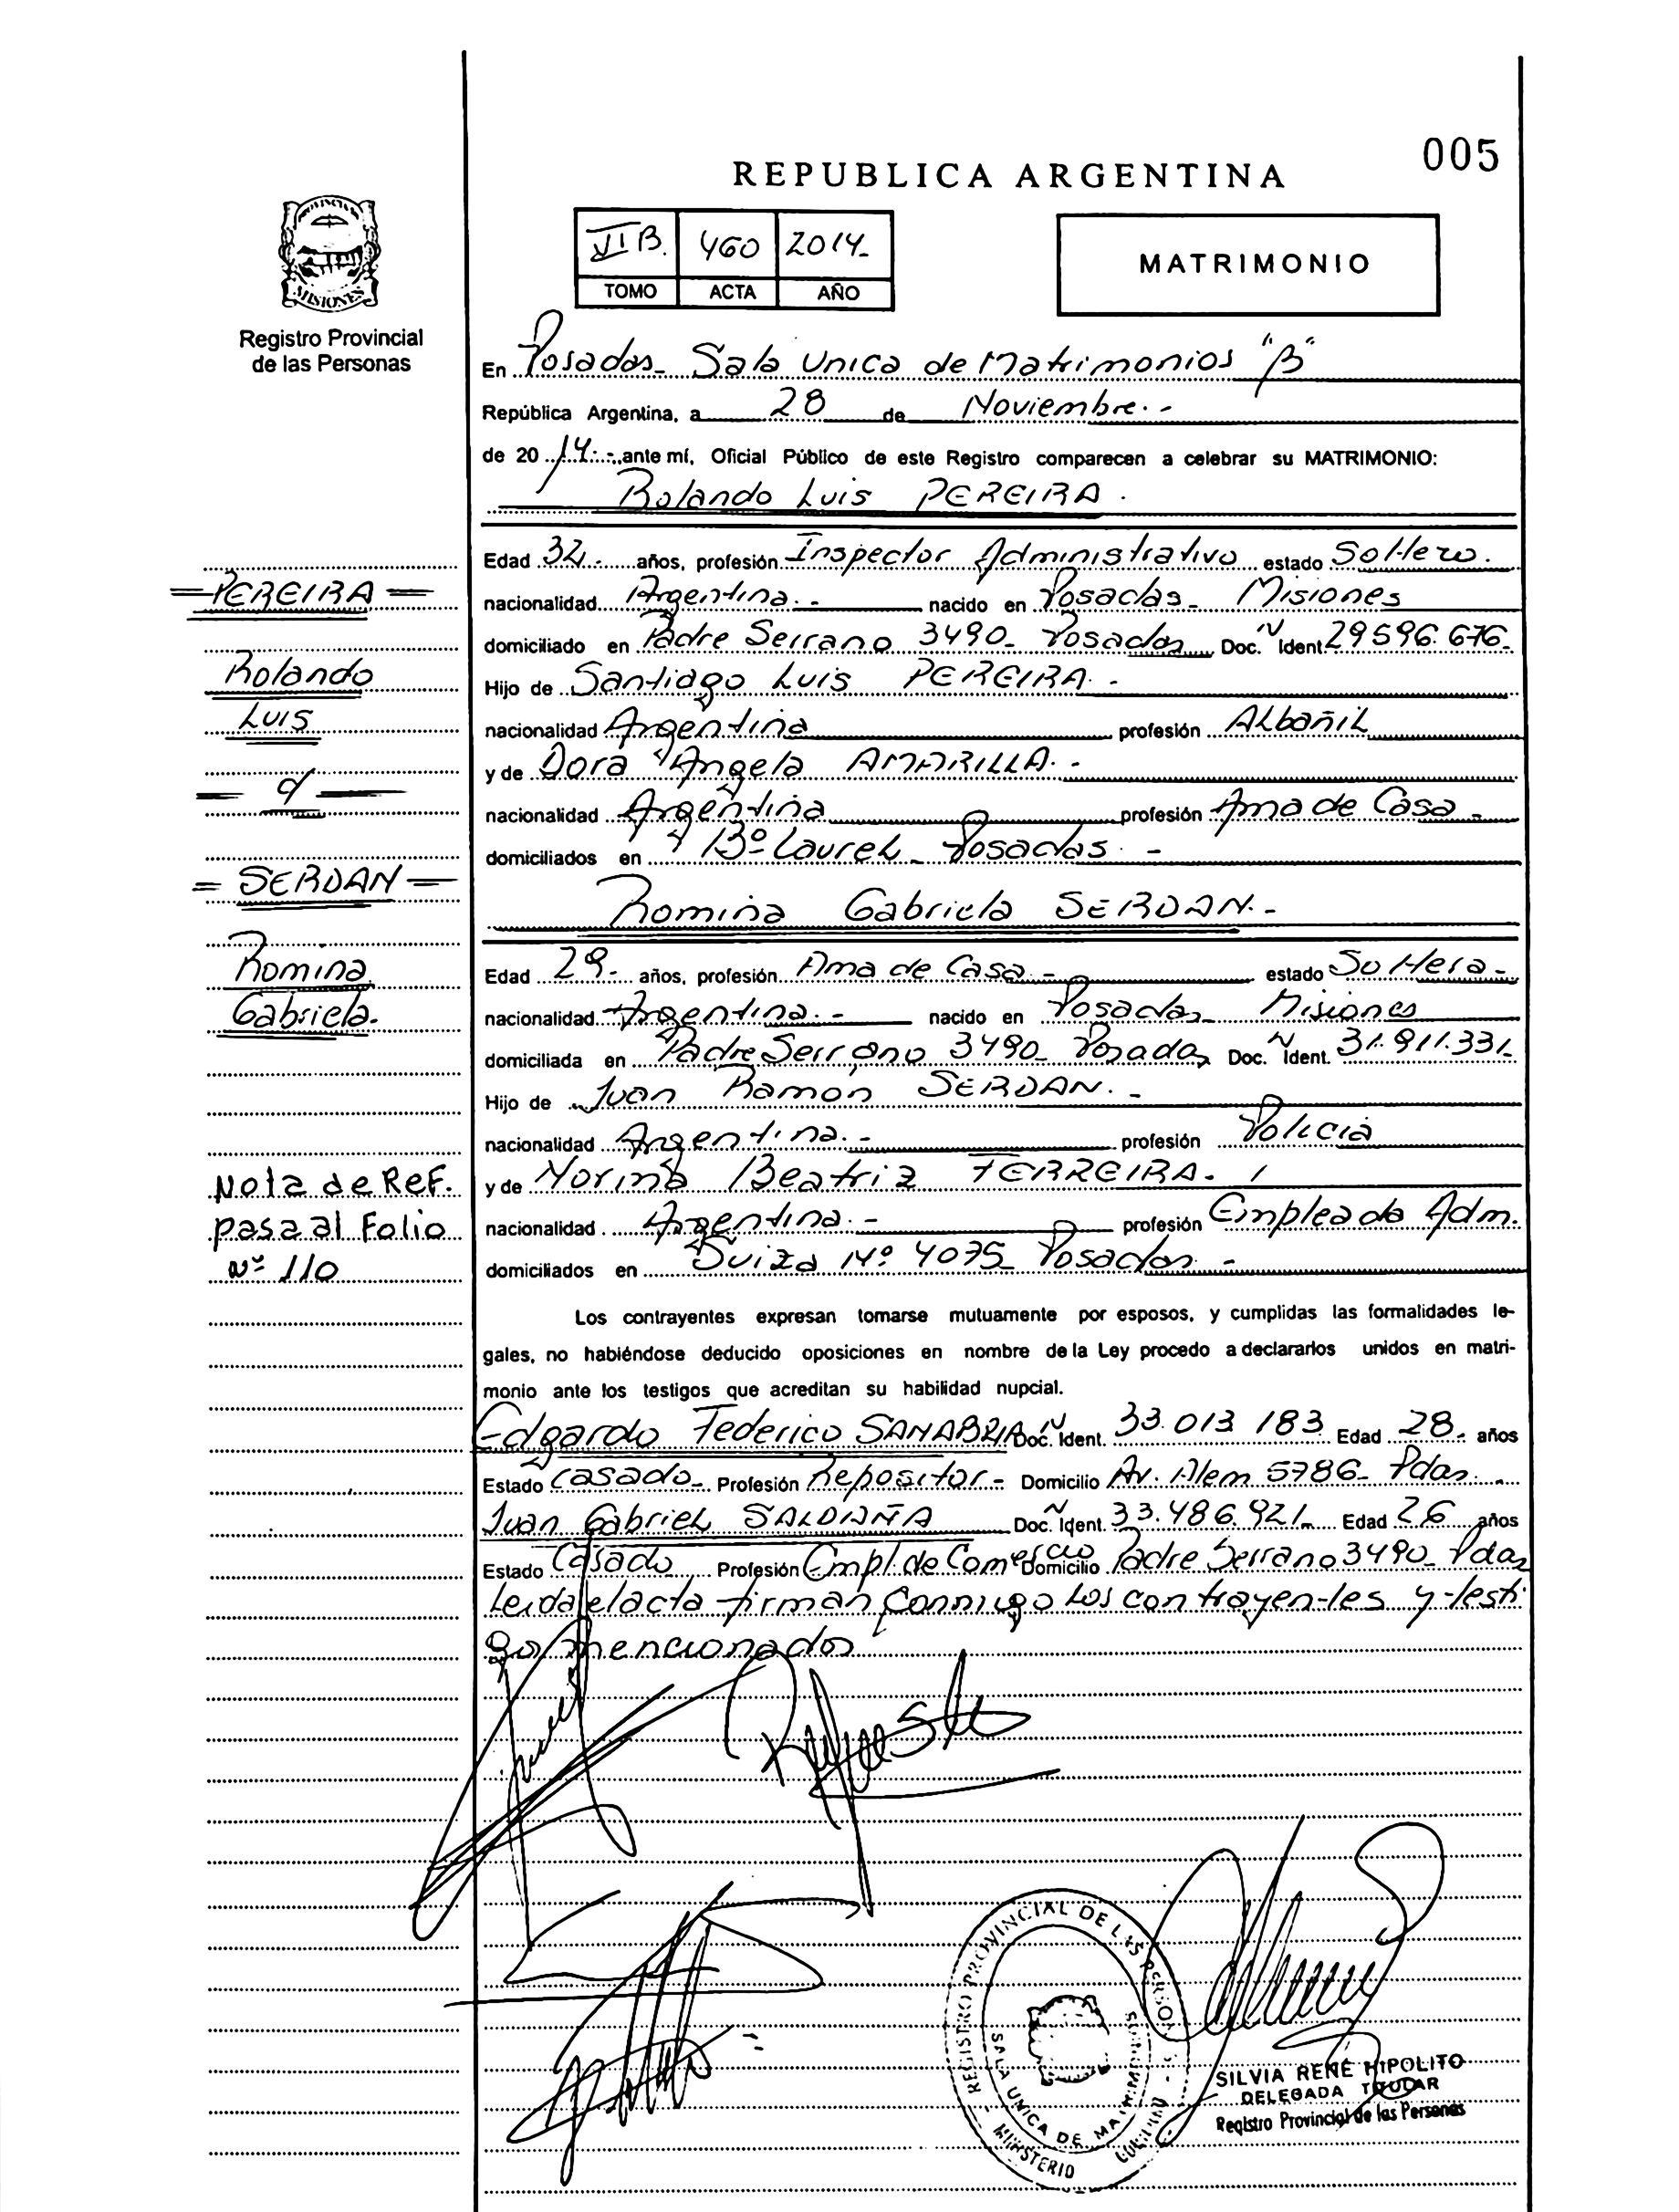 005
REPUBLICA ARGENTINA
PROVINCIA DE
MISIONES
Registro Provincial
de las Personas
VI B. 460 2014.-
TOMO ACTA AÑO
MATRIMONIO
En Posadas - Sala Unica de Matrimonios "B"
República Argentina, a 28 de Noviembre.-
de 20 14.-, ante mí, Oficial Público de este Registro comparecen a celebrar su MATRIMONIO:
Rolando Luis PEREIRA.
Edad 32.- años, profesión Inspector Administrativo estado Soltero.
nacionalidad Argentina.- nacido en Posadas - Misiones
domiciliado en Padre Serrano 3490 - Posadas Doc. Ident. 29596.676.-
Hijo de Santiago Luis PEREIRA.-
nacionalidad Argentina profesión ALbañiL
y de Dora Angela AMARILLA.-
nacionalidad Argentina profesión Ama de Casa.-
domiciliados en Bº LaureL - Posadas.-
Romina Gabriela SERDAN.-
Edad 29.- años, profesión Ama de Casa.- estado Soltera.-
nacionalidad Argentina.- nacido en Posadas - Misiones
domiciliada en Padre Serrano 3490 - Posadas Doc. Ident. 31.911.331.-
Hijo de Juan Ramón SERDAN.-
nacionalidad Argentina.- profesión Policia
y de Norma Beatriz FERREIRA.
nacionalidad Argentina.- profesión Empleada Adm.
domiciliados en Suiza Nº 4075 - Posadas.-
Los contrayentes expresan tomarse mutuamente por esposos, y cumplidas las formalidades le-
gales, no habiéndose deducido oposiciones en nombre de la Ley procedo a declararlos unidos en matri-
monio ante los testigos que acreditan su habilidad nupcial.
Edgardo Federico SANABRIA Doc. Ident. 33.013.183 Edad 28.- años
Estado Casado - Profesión Repositor.- Domicilio Av. Alem 5786 - Pdas.-
Juan GabrieL SALDAÑA Doc. Ident. 33.486.921.- Edad 26 años
Estado Casado Profesión Empl. de Comercio Domicilio Padre Serrano 3490 - Pdas
Leida el acta firman conmigo Los contrayentes y testi
gos mencionados
= PEREIRA =
Rolando
Luis
= c/ =
= SERDAN =
Romina
Gabriela.
Nota de Ref.
pasa al Folio
Nº 110
REGISTRO PROVINCIAL DE LAS PERSONAS
SALA UNICA DE MATRIMONIOS
MINISTERIO
SILVIA RENÉ HIPOLITO
DELEGADA TITULAR
Registro Provincial de las Personas